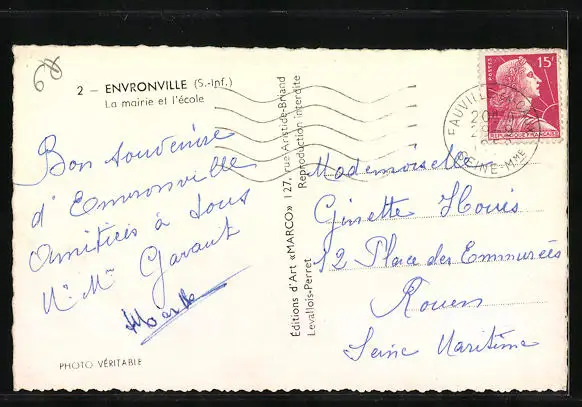 2 – ENVRONVILLE (S.-Inf.)
La mairie et l'école
Bon souvenire
d'Envronville
Amitiées à tous
Mr Mme Gavant
PHOTO VÉRITABLE
Éditions d'Art «MARCO» 127, rue Aristide-Briand
Levallois-Perret
Reproduction interdite
POSTES
15F
REPUBLIQUE FRANÇAISE
FAUVILLE
SEINE-Mme
Mademoiselle
Ginette Houis
12 Place des Emmurées
Rouen
Seine Maritime